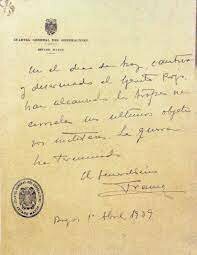 CUARTEL GENERAL DEL GENERALISIMO
ESTADO MAYOR
En el dia de hoy, cautivo
y desarmado el Ejercito Rojo,
han alcanzado las tropas na
cionales sus ultimos objeti
vos militares. La guerra
ha terminado.
El Generalisimo
Franco
Burgos 1º Abril 1939